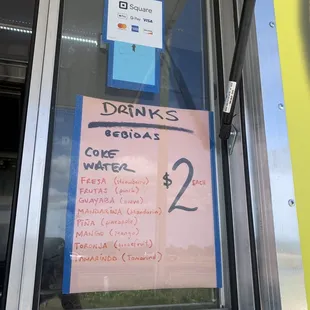 Square
Pay
Pay
VISA
DRINKS
BEBIDAS
COKE
WATER
$2 EACH
FRESA (strawberry)
FRUTAS (punch)
GUAYABA (guava)
MANDARINA (Mandarin)
PIÑA (pineapple)
MANGO (mango)
TORONJA (grapefruit)
TAMARINDO (Tamarind)